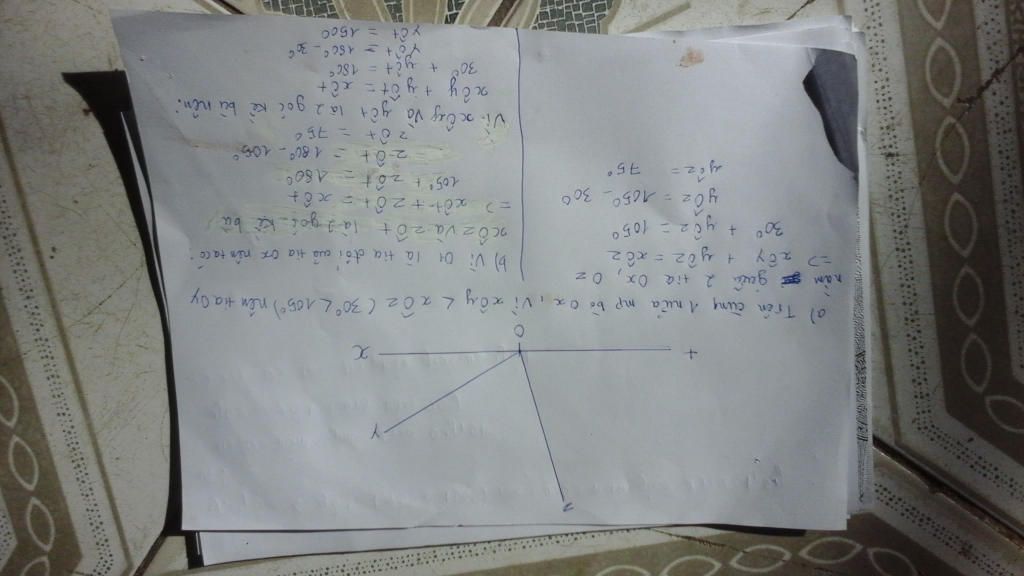 z
y
t
x
O
a) Trên cùng 1 nửa mp bờ Ox, vì xÔy < xÔz (30° < 105°) nên tia Oy
nằm giữa 2 tia Ox, Oz
=> xÔy + yÔz = xÔz
30° + yÔz = 105°
yÔz = 105° - 30°
yÔz = 75°
b) Vì Ot là tia đối của tia Ox nên ta có:
xÔz và zÔt là 2 góc kề bù
=> xÔt + zÔt = xÔt
105° + zÔt = 180°
zÔt = 180° - 105°
zÔt = 75°
Vì xÔy và yÔt là 2 góc kề bù nên:
xÔy + yÔt = xÔt
30° + yÔt = 180°
yÔt = 180° - 30°
yÔt = 150°